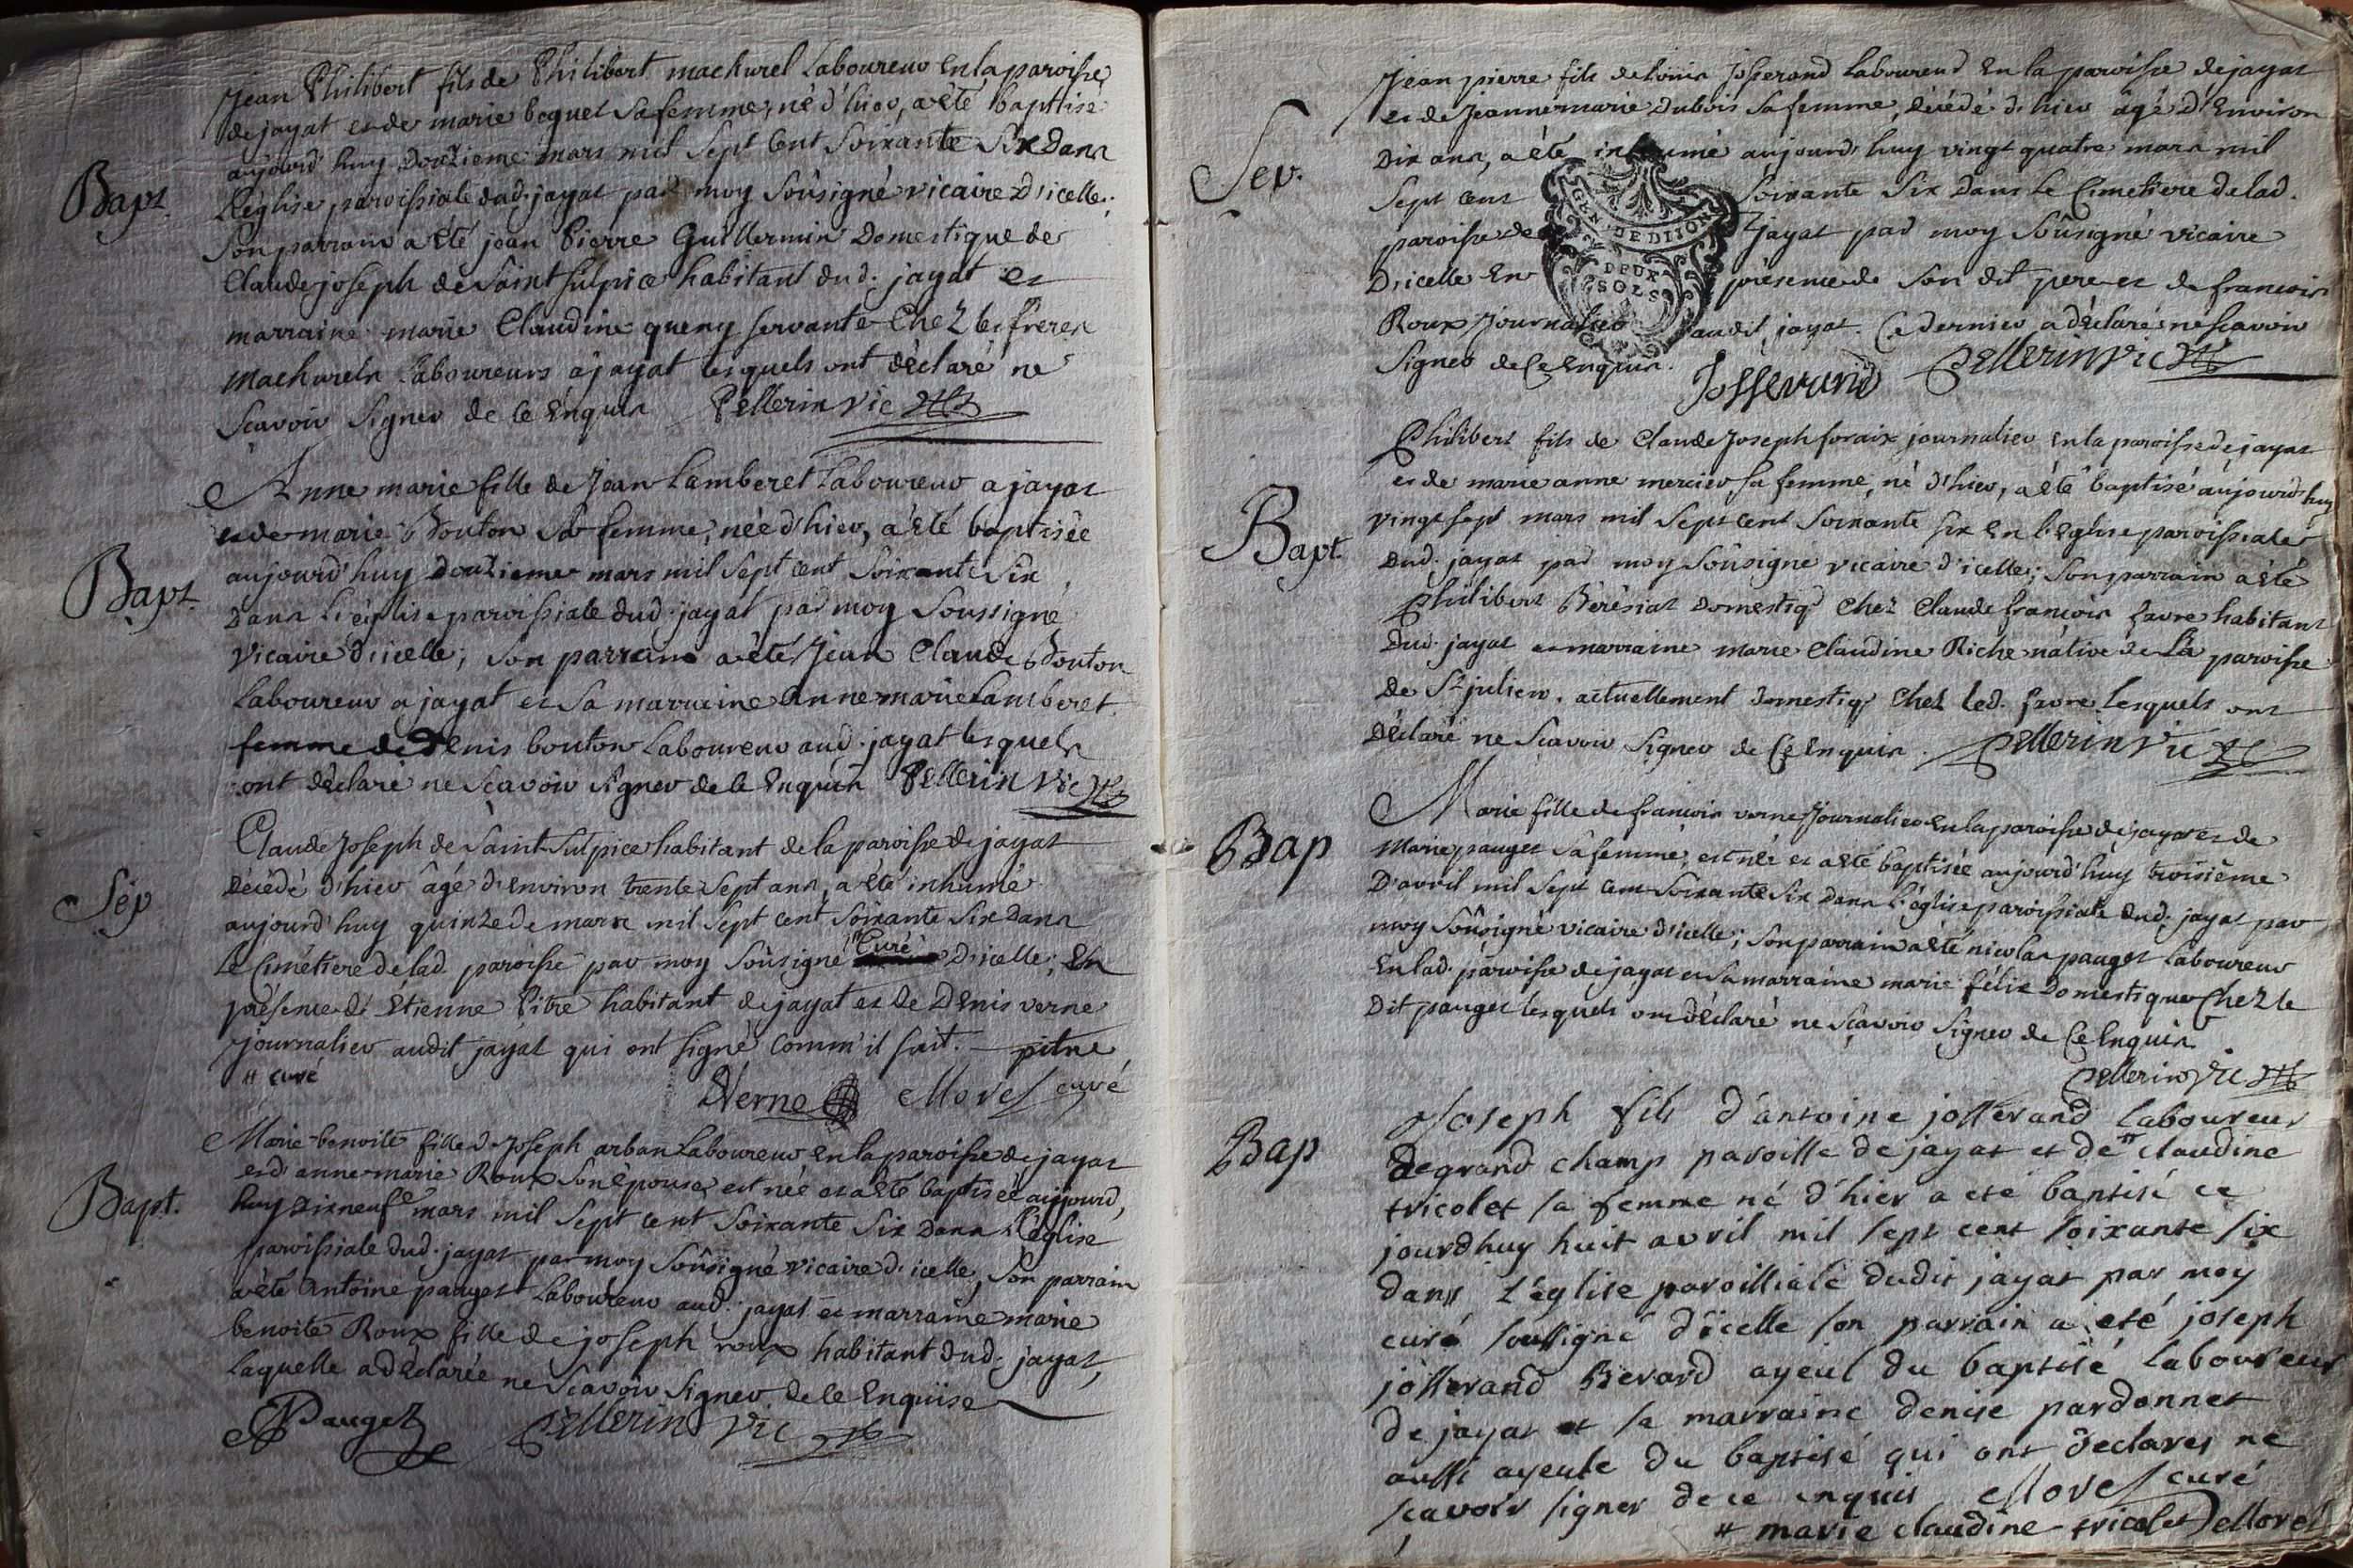 Jean Philibert fils de Philibert machurel Laboureur en la paroisse
de jayat et de marie boquet sa femme, né d'hier, a été baptisé
aujourd'huy douzieme mars mil sept cent soixante six dans
L'église paroissiale dud. jayat par moy soûsigné vicaire d'icelle;
son parrain a été jean Pierre Guillermin Domestique de
Claude joseph de saint sulpice habitant dud. jayat et
marraine marie Claudine queny servante chez les freres
machurels Laboureurs à jayat lesquels ont déclaré ne
scavoir signer de ce enquis Pellerin vic
Bapt.
Anne marie fille de Jean Lamberet Laboureur a jayat
et de marie Bouton sa femme, née d'hier, a été baptisée
aujourd'huy douzieme mars mil sept cent soixante six
dans l'église paroissiale dud. jayat par moy soussigné
vicaire d'icelle; son parrain a été Jean Claude Bouton
Laboureur a jayat et sa marraine Anne marie Lamberet
femme de Denis bouton Laboureur aud. jayat lesquels
ont déclaré ne scavoir signer de ce enquis Pellerin vic
Bapt.
Claude Joseph de Saint Sulpice habitant de la paroisse de jayat
décédé d'hier âgé d'environ trente sept ans, a été inhumé
aujourd'huy quinze de mars mil sept cent soixante six dans
le Cimétiere de lad. paroisse par moy soûsigné "Curé d'icelle; en
présence de Etienne Pitre habitant de jayat et de Denis verne
journalier audit jayat qui ont signé comm'il suit. pitre
" curé
DVerne Morel curé
Sép
Marie benoite fille de Joseph arban Laboureur en la paroisse de jayat
et d'anne marie Roux son épouse, est née et a été baptisée aujourd'
huy dixneufe mars mil sept cent soixante six dans l'église
paroissiale dud. jayat par moy soûsigné vicaire d'icelle, son parrain
a été Antoine pauget Laboureur aud. jayat et marraine marie
benoite Roux fille de joseph roux habitant dud. jayat,
laquelle a déclarée ne scavoir signer de ce enquise
Pauget Pellerin Vic
Bapt.
Jean pierre fils de Josserand Laboureur en la paroisse de jayat
et de Jeanne marie Dubois sa femme, décédé d'hier âgé d'environ
dix ans, a été inhumé aujourd'huy vingt quatre mars mil
sept cent soixante six dans le Cimetiere de lad.
paroisse de Jayat par moy soûsigné vicaire
d'icelle en présence de son dit pere et de francois
Roux Journalier audit jayat. Ce dernier a déclaré ne scavoir
signer de ce enquis.
Josserand Pellerin vic
Sep.
GEN. DE DIJON
DEUX
SOLS
Philibert fils de Claude Joseph foraix journalier en la paroisse de jayat
et de marie anne mercier sa femme, né d'hier, a été baptisé aujourd'huy
vingt sept mars mil sept cent soixante six en l'église paroissiale
dud. jayat par moy soûsigné vicaire d'icelle; son parrain a été
Philibert Bérésiat domestiq chez Claude francois favre habitant
dud. jayat et marraine marie Claudine Riche native de la paroisse
de St julien, actuellement domestiq chez led. favre lesquels ont
déclaré ne scavoir signer de ce enquis. Pellerin vic
Bapt.
Marie fille de francois verne Journalier en la paroisse de jayat et de
Marie pauget sa femme, est née et a été baptisée aujourd'huy troisieme
d'avril mil sept cent soixante six dans l'église paroissiale dud. jayat par
moy soûsigné vicaire d'icelle; son parrain a été nicolas pauget Laboureur
en lad. paroisse de jayat et sa marraine marie félix domestique chez le
dit pauget lesquels ont déclaré ne scavoir signer de ce enquis
Pellerin vic
Bap
Joseph fils d'antoine josserand laboureur
de grand champ paroisse de jayat et de " claudine
tricolet sa femme né d'hier a eté baptisé ce
jourdhuy huit avril mil sept cent soixante six
dans l'église paroissiale dudit jayat par moy
curé soussigné d'icelle son parrain a eté joseph
josserand Berard ayeul du baptisé laboureur
de jayat et sa marraine denise pardonnet
aussi ayeule du baptisé qui ont declares ne
scavoir signer de ce enquis Morel curé
" marie claudine tricolet Morel
Bap